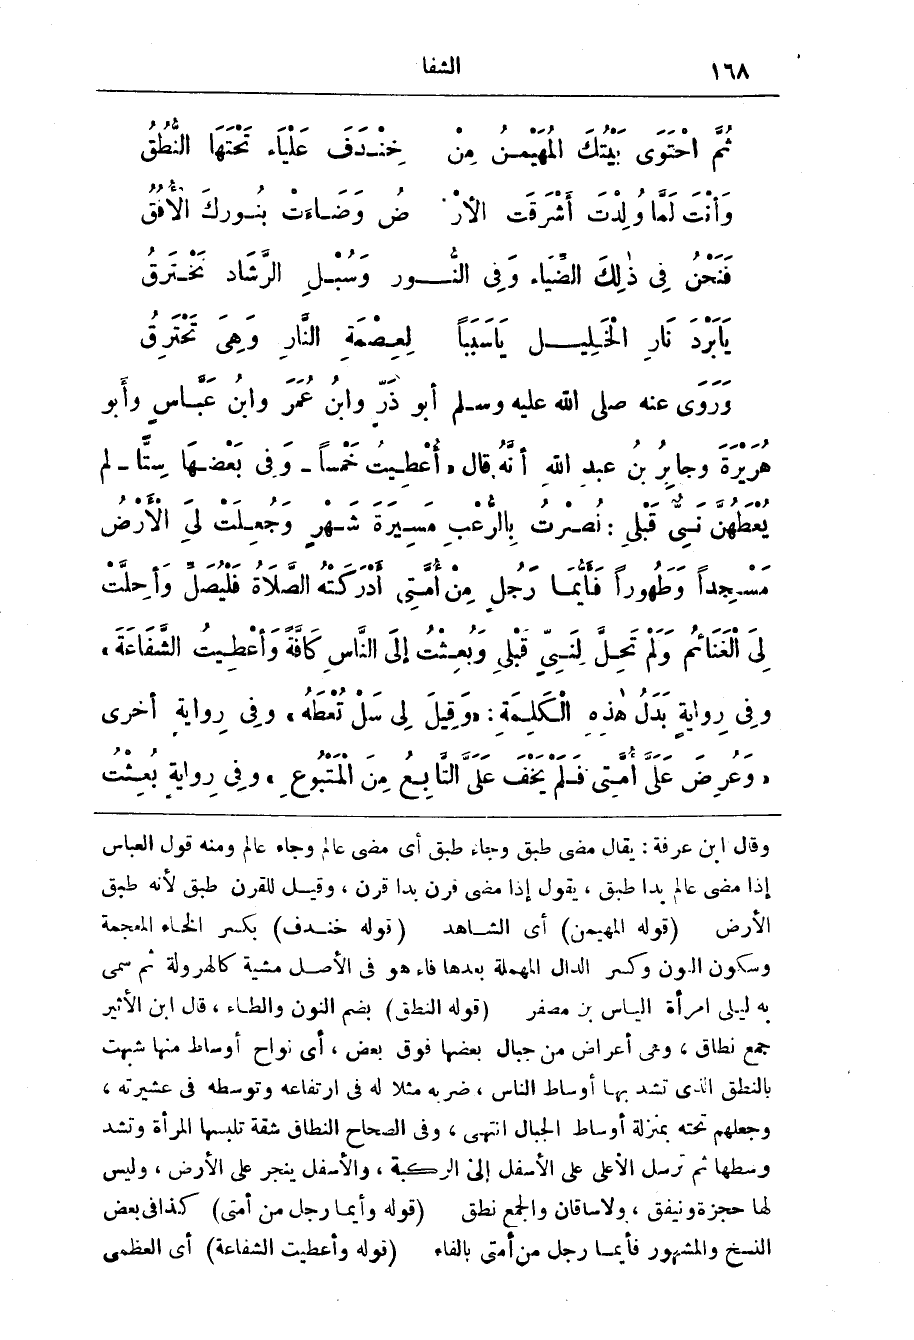 ١٦٨ الشفا
ثُمَّ احْتَوَى بَيْتُكَ المُهَيْمِنُ مِنْ خِنْدَفَ عَلْيَاءَ تَحْتَهَا النُّطُقُ
وَأَنْتَ لَمَّا وُلِدْتَ أَشْرَقَتِ الأَرْ ضُ وَضَاءَتْ بِنُورِكَ الأُفُقُ
فَنَحْنُ فِى ذٰلِكَ الضِّيَاءِ وَفِى النُّـــورِ وَسُبْلِ الرَّشَادِ نَخْتَرِقُ
يَابَرْدَ نَارِ الْخَلِيـــلِ يَاسَبَباً لِعِصْمَةِ النَّارِ وَهِىَ تَحْتَرِقُ
وَرَوَى عنه صلى الله عليه وسلم أبو ذَرٍّ وابنُ عُمَرَ وابنُ عَبَّاسٍ وأبو
هُرَيْرَةَ وجابِرُ بنُ عبدِ اللهِ أنَّهُ قال «أُعْطِيتُ خَمْساً ـ وَفِى بَعْضِهَا سِتًّا ـ لم
يُعْطَهُنَّ نَبِىٌّ قَبْلِى : نُصِرْتُ بِالرُّعْبِ مَسِيرَةَ شَهْرٍ وَجُعِلَتْ لِىَ الْأَرْضُ
مَسْجِداً وَطَهُوراً فَأَيُّمَا رَجُلٍ مِنْ أُمَّتِى أَدْرَكَتْهُ الصَّلَاةُ فَلْيُصَلِّ وَأُحِلَّتْ
لِىَ الْغَنَائِمُ وَلَمْ تَحِلَّ لِنَبِىٍّ قَبْلِى وَبُعِثْتُ إِلَى النَّاسِ كَافَّةً وَأُعْطِيتُ الشَّفَاعَةَ»
وفِى رِوايةٍ بَدَلُ هٰذِهِ الْكَلِمَةِ : «وَقِيلَ لِى سَلْ تُعْطَهْ» وفِى رِوايةٍ أخرى
«وَعُرِضَ عَلَىَّ أُمَّتِى فَلَمْ يَخْفَ عَلَىَّ التَّابِعُ مِنَ الْمَتْبُوعِ» وفِى رِوايةٍ بُعِثْتُ
وقال ابن عرفة : يقال مضى طبق وجاء طبق أى مضى عالم وجاء عالم ومنه قول العباس
إذا مضى عالم بدا طبق ، يقول إذا مضى قرن بدا قرن ، وقيل للقرن طبق لأنه طبق
الأرض (قوله المهيمن) أى الشاهد (قوله خندف) بكسر الخاء المعجمة
وسكون النون وكسر الدال المهملة بعدها فاء هو فى الأصل مشية كالهرولة ثم سمى
به ليلى امرأة الياس بن مضر (قوله النطق) بضم النون والطاء ، قال ابن الأثير
جمع نطاق ، وهى أعراض من جبال بعضها فوق بعض ، أى نواح أوساط منها شبهت
بالنطق الذى تشد بها أوساط الناس ، ضربه مثلا له فى ارتفاعه وتوسطه فى عشيرته ،
وجعلهم تحته بمنزلة أوساط الجبال انتهى ، وفى الصحاح النطاق شقة تلبسها المرأة وتشد
وسطها ثم ترسل الأعلى على الأسفل إلى الركبة ، والأسفل ينجر على الأرض ، وليس
لها حجزة ونيفق ، ولا ساقان والجمع نطق (قوله وأيما رجل من أمتى) كذا فى بعض
النسخ والمشهور فأيما رجل من أمتى بالفاء (قوله وأعطيت الشفاعة) أى العظمى